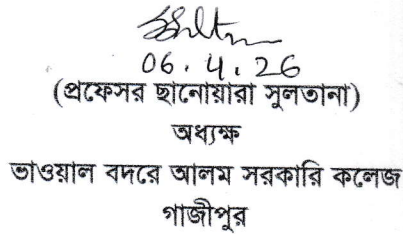 06.4.26
(প্রফেসর ছানোয়ারা সুলতানা)
অধ্যক্ষ
ভাওয়াল বদরে আলম সরকারি কলেজ
গাজীপুর